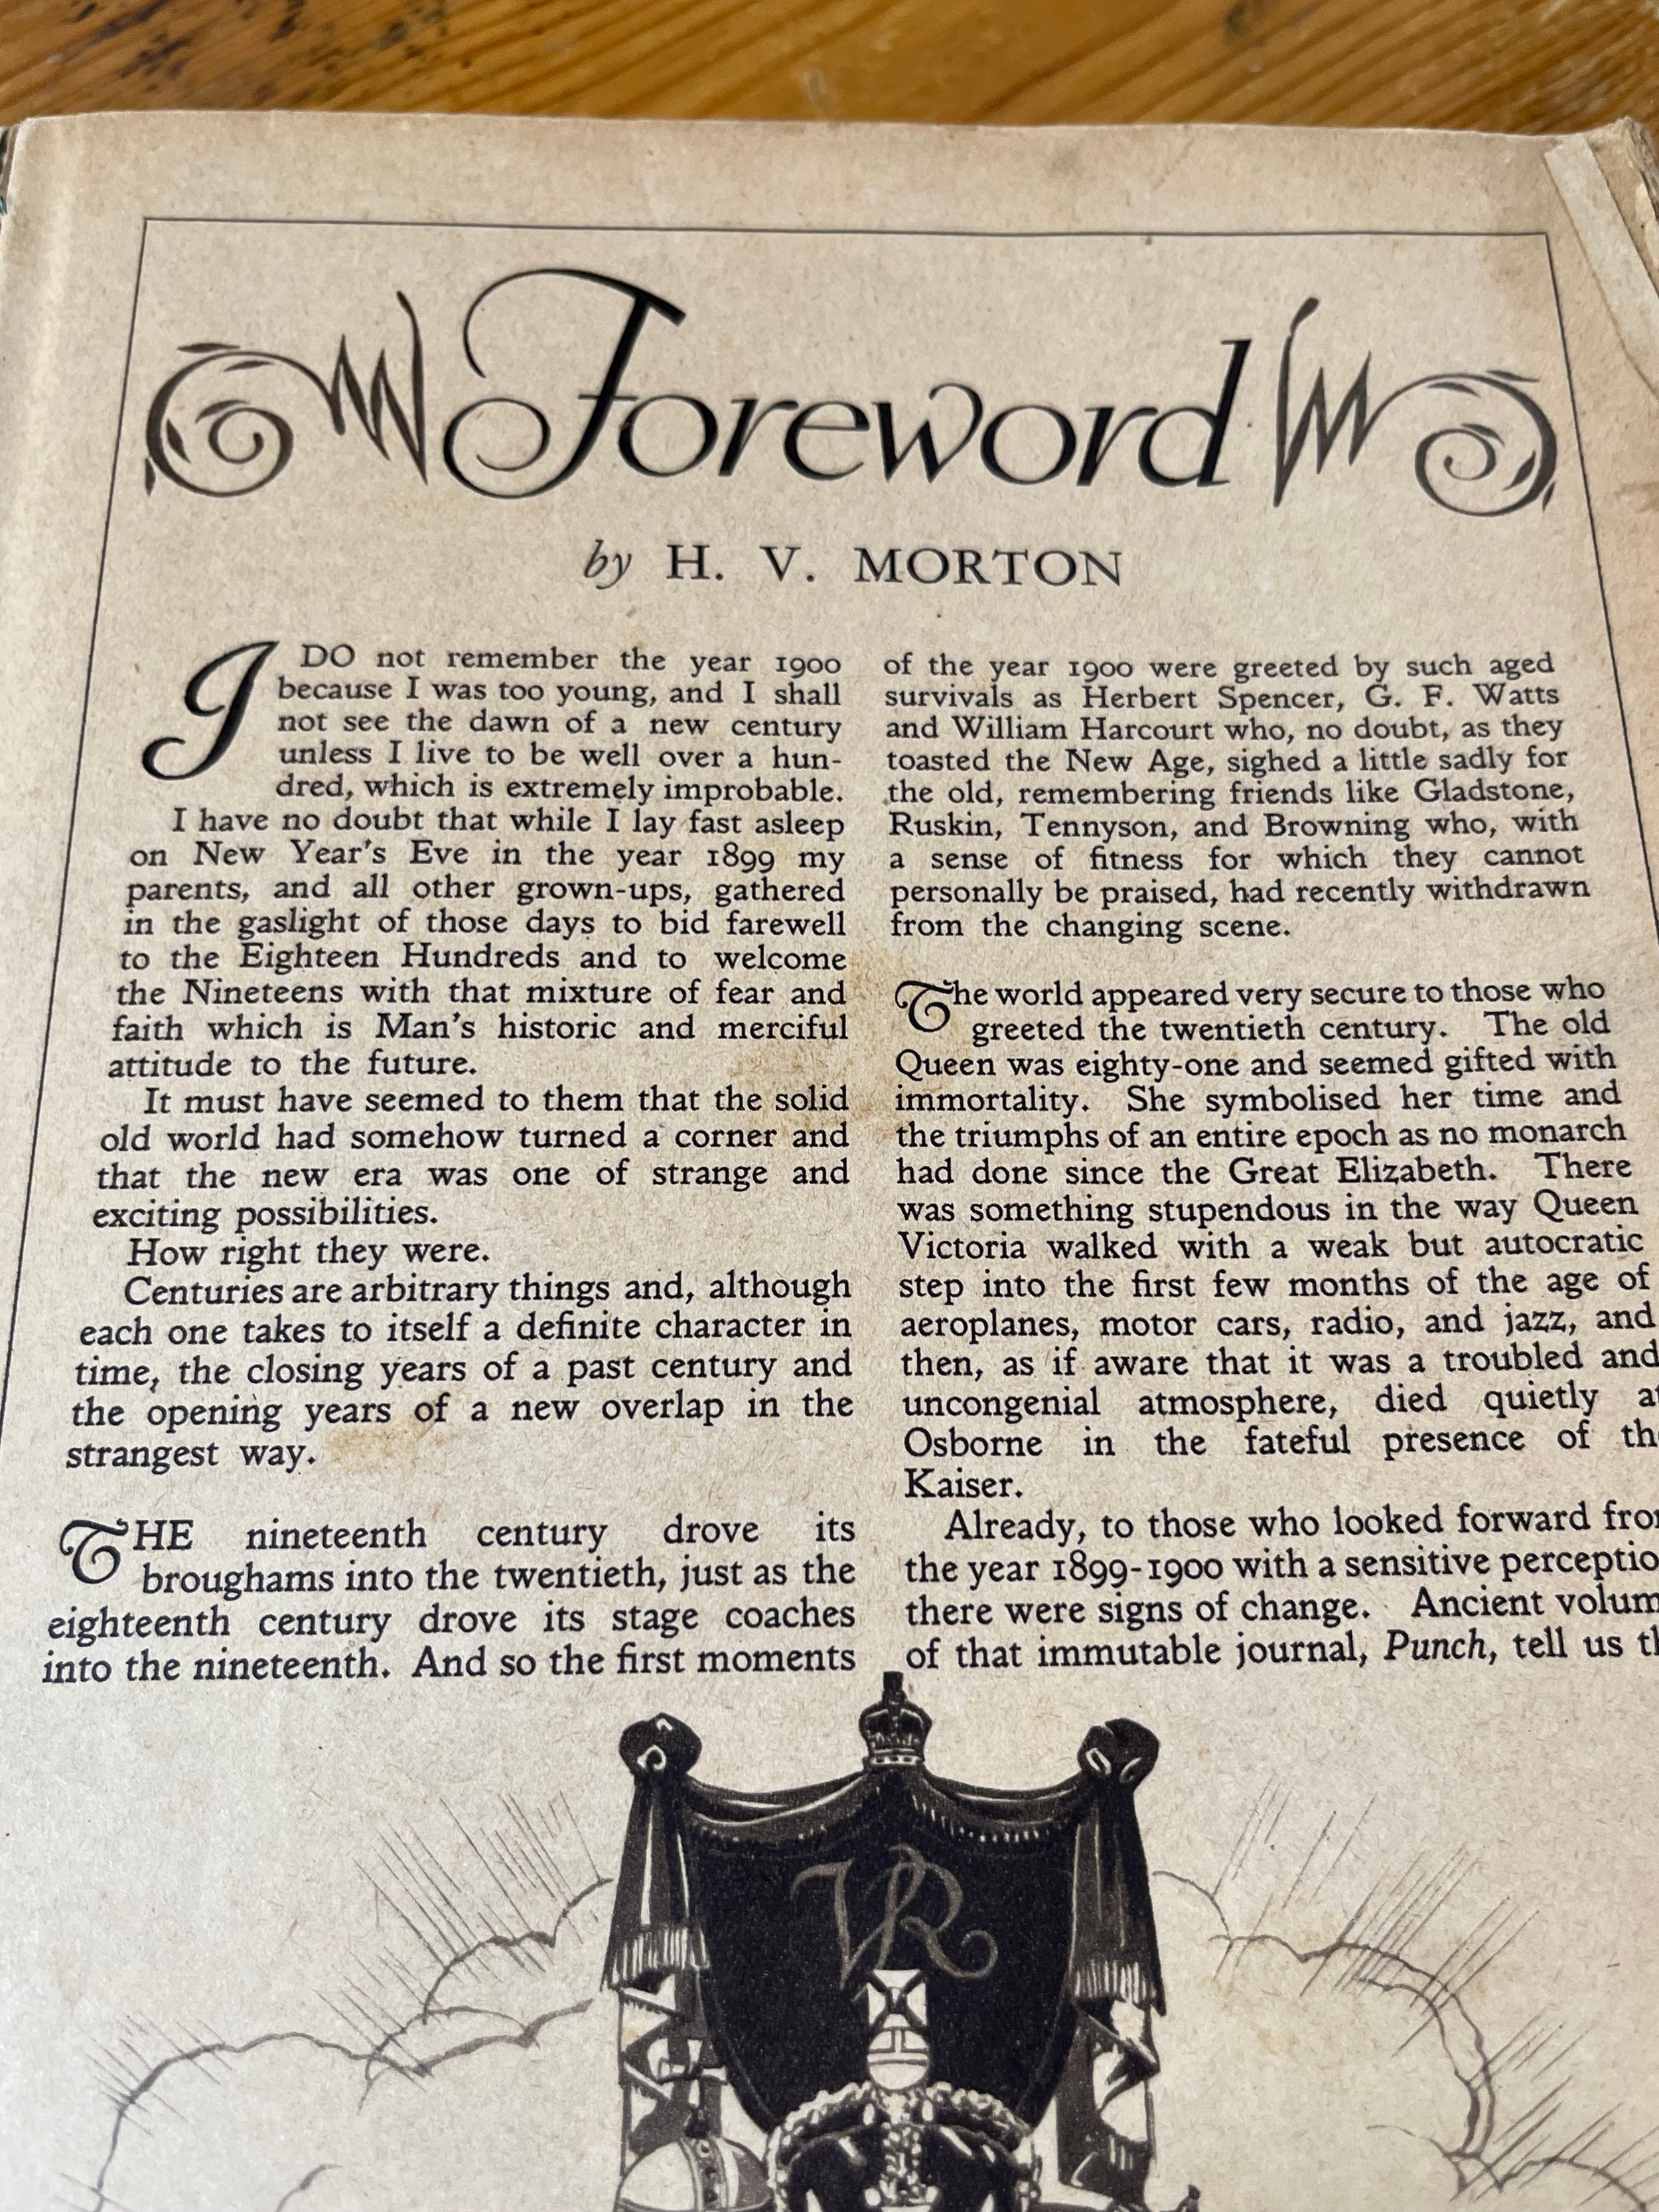 Foreword
by H. V. MORTON
I DO not remember the year 1900
because I was too young, and I shall
not see the dawn of a new century
unless I live to be well over a hun-
dred, which is extremely improbable.
I have no doubt that while I lay fast asleep
on New Year's Eve in the year 1899 my
parents, and all other grown-ups, gathered
in the gaslight of those days to bid farewell
to the Eighteen Hundreds and to welcome
the Nineteens with that mixture of fear and
faith which is Man's historic and merciful
attitude to the future.
It must have seemed to them that the solid
old world had somehow turned a corner and
that the new era was one of strange and
exciting possibilities.
How right they were.
Centuries are arbitrary things and, although
each one takes to itself a definite character in
time, the closing years of a past century and
the opening years of a new overlap in the
strangest way.
THE nineteenth century drove its
broughams into the twentieth, just as the
eighteenth century drove its stage coaches
into the nineteenth. And so the first moments
of the year 1900 were greeted by such aged
survivals as Herbert Spencer, G. F. Watts
and William Harcourt who, no doubt, as they
toasted the New Age, sighed a little sadly for
the old, remembering friends like Gladstone,
Ruskin, Tennyson, and Browning who, with
a sense of fitness for which they cannot
personally be praised, had recently withdrawn
from the changing scene.
The world appeared very secure to those who
greeted the twentieth century. The old
Queen was eighty-one and seemed gifted with
immortality. She symbolised her time and
the triumphs of an entire epoch as no monarch
had done since the Great Elizabeth. There
was something stupendous in the way Queen
Victoria walked with a weak but autocratic
step into the first few months of the age of
aeroplanes, motor cars, radio, and jazz, and
then, as if aware that it was a troubled and
uncongenial atmosphere, died quietly
Osborne in the fateful presence of
Kaiser.
Already, to those who looked forward
the year 1899-1900 with a sensitive
there were signs of change. Ancient
of that immutable journal, Punch, tell us
VR